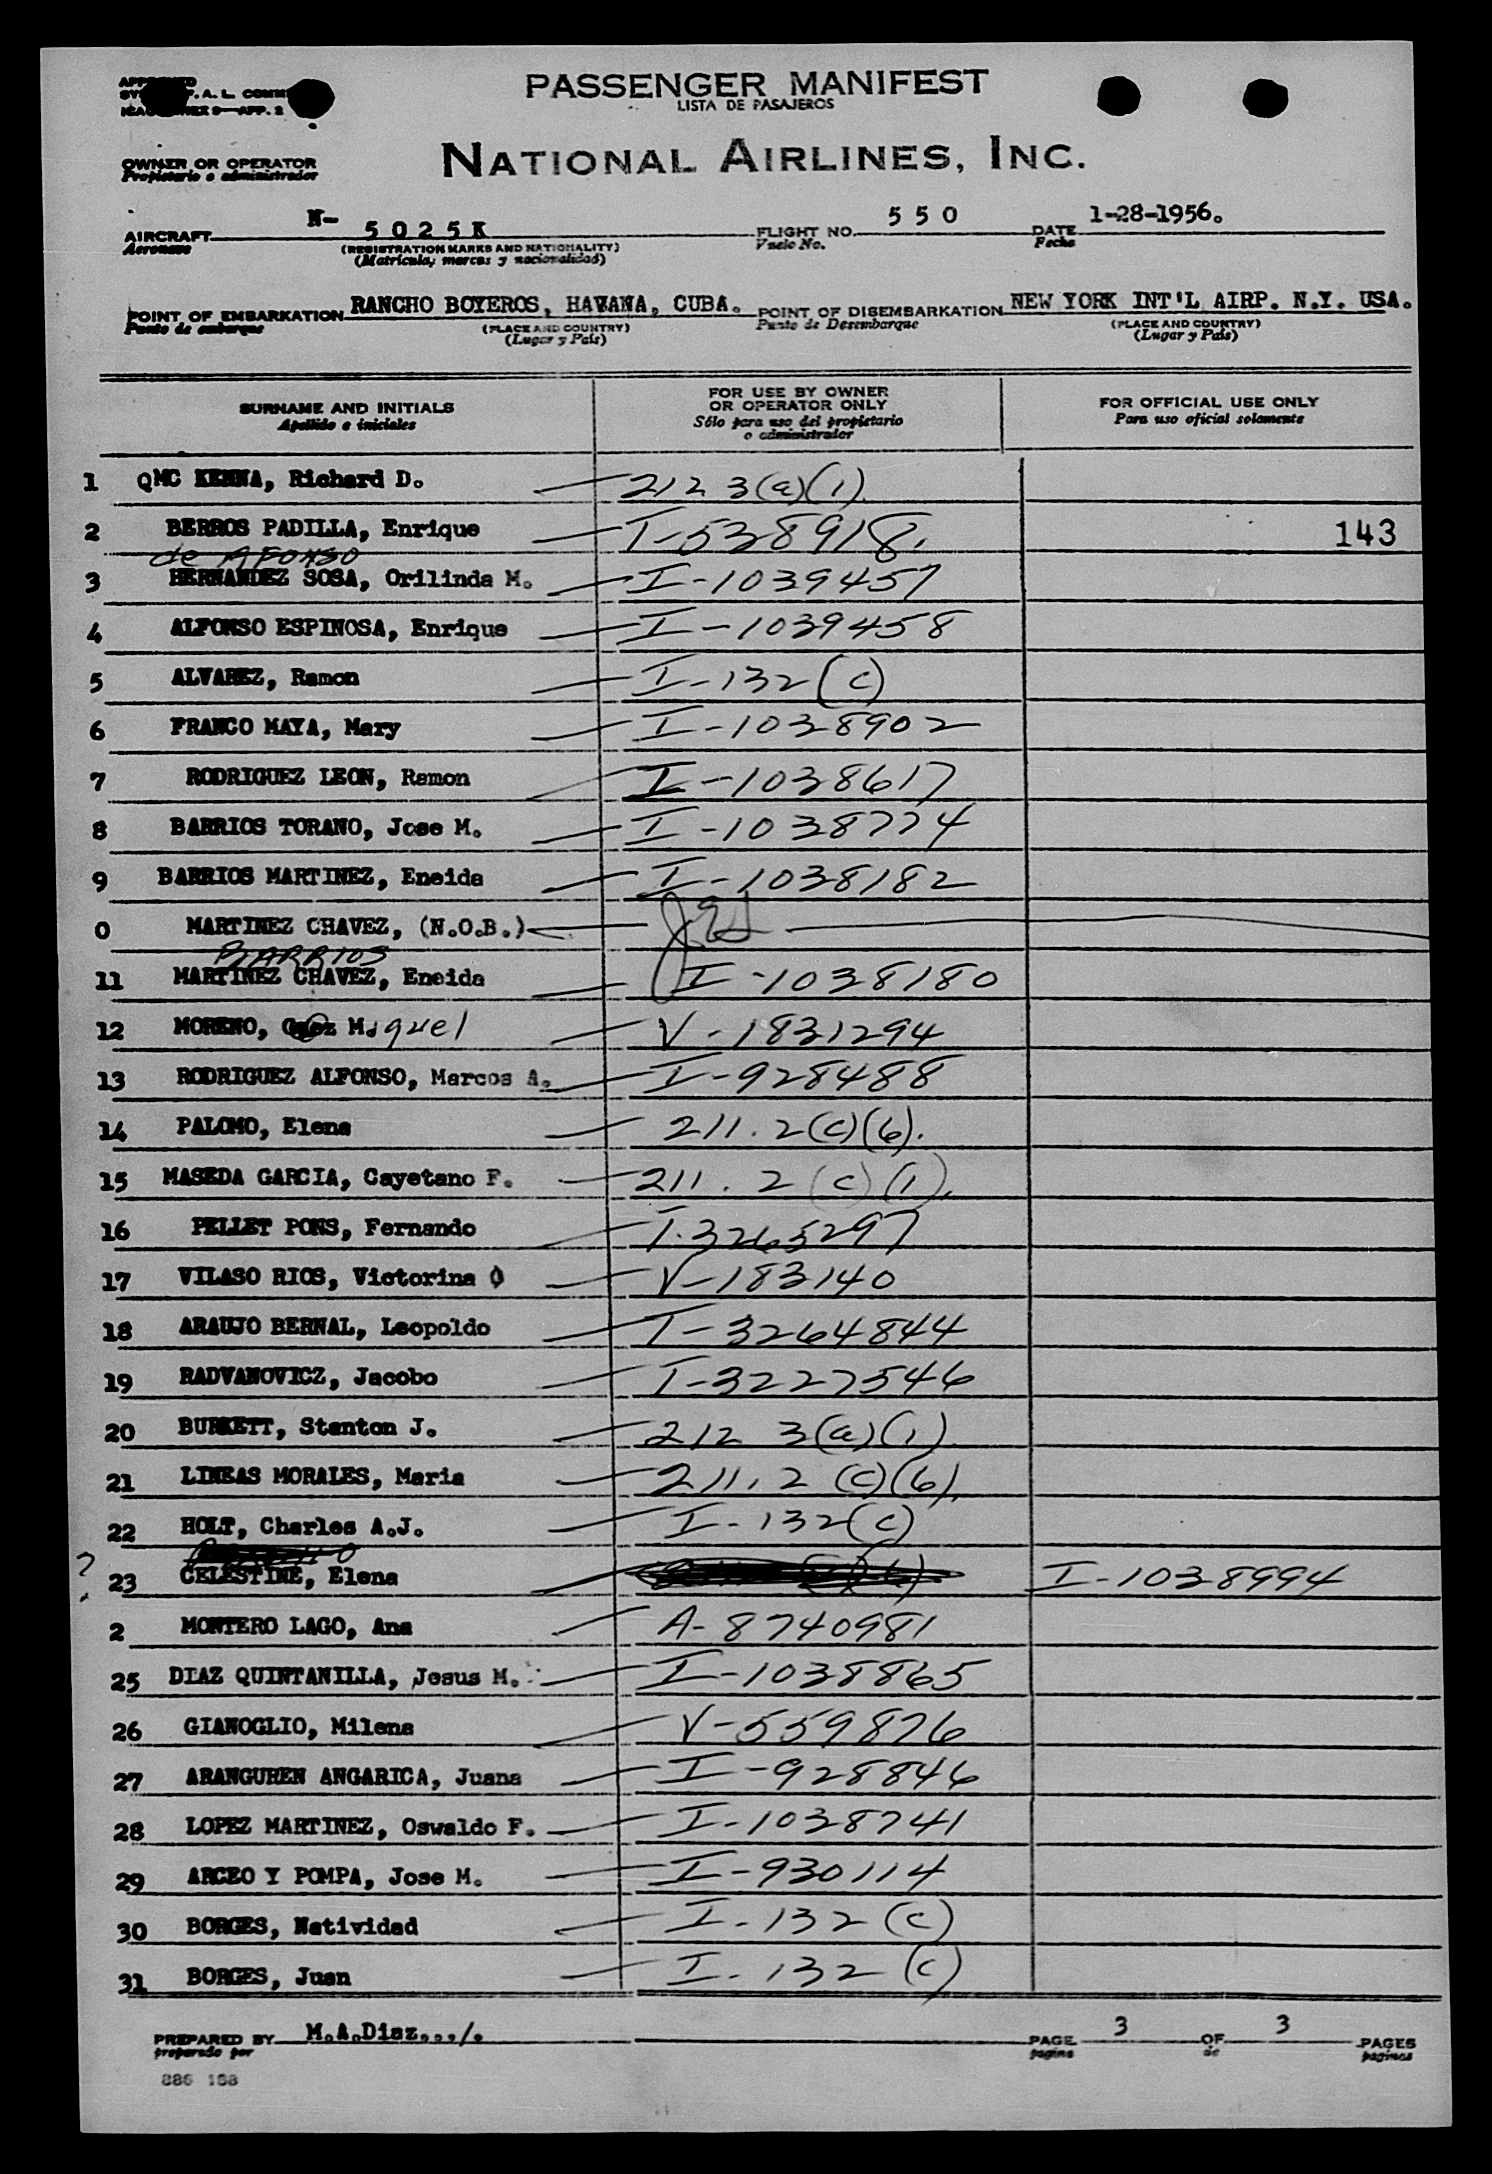 PASSENGER MANIFEST
LISTA DE PASAJEROS
NATIONAL AIRLINES, INC.
OWNER OR OPERATOR
Propietario o administrador
AIRCRAFT N- 5025K FLIGHT NO. 550 DATE 1-28-1956.
Aeronave (REGISTRATION MARKS AND NATIONALITY) Vuelo No. Fecha
(Matricula, marcas y nacionalidad)
POINT OF EMBARKATION RANCHO BOYEROS, HAVANA, CUBA. POINT OF DISEMBARKATION NEW YORK INT'L AIRP. N.Y. USA.
Punto de embarque (PLACE AND COUNTRY) Punto de Desembarque (PLACE AND COUNTRY)
(Lugar y País) (Lugar y País)
SURNAME AND INITIALS FOR USE BY OWNER OR OPERATOR ONLY FOR OFFICIAL USE ONLY
Apellido e iniciales Sólo para uso del propietario o administrador Para uso oficial solamente
1 QMC KENNA, Richard D. 212 3(a)(1).
2 BERROS PADILLA, Enrique T-538918. 143
de AFONSO
3 HERNANDEZ SOSA, Orilinda M. I-1039457
4 ALFONSO ESPINOSA, Enrique I-1039458
5 ALVAREZ, Ramon I-132(c)
6 FRANCO MAYA, Mary I-1038902
7 RODRIGUEZ LEON, Ramon I-1038617
8 BARRIOS TORANO, Jose M. I-1038774
9 BARRIOS MARTINEZ, Eneida I-1038182
0 MARTINEZ CHAVEZ, (N.O.B.)
BARRIOS
11 MARTINEZ CHAVEZ, Eneida I-1038180
12 MORENO, M.iguel V-1831294
13 RODRIGUEZ ALFONSO, Marcos A. I-928488
14 PALOMO, Elena 211.2(c)(6).
15 MASEDA GARCIA, Cayetano F. 211.2(c)(1).
16 PELLET PONS, Fernando T.3265297
17 VILASO RIOS, Victorina V-183140
18 ARAUJO BERNAL, Leopoldo T-3264844
19 RADVANOVICZ, Jacobo T-3227546
20 BURKETT, Stanton J. 212 3(a)(1)
21 LINEAS MORALES, Maria 211.2(c)(6).
22 HOLT, Charles A.J. I-132(c)
? 23 CELESTINE, Elena I-1038994
2 MONTERO LAGO, Ana A-8740981
25 DIAZ QUINTANILLA, Jesus M. I-1038865
26 GIANOGLIO, Milena V-559876
27 ARANGUREN ANGARICA, Juana I-928846
28 LOPEZ MARTINEZ, Oswaldo F. I-1038741
29 ARCEO Y POMPA, Jose M. I-930114
30 BORGES, Natividad I-132(c)
31 BORGES, Juan I-132(c)
PREPARED BY M.A.Diaz.../. PAGE 3 OF 3 PAGES
preparado por pagina de paginas
886 188